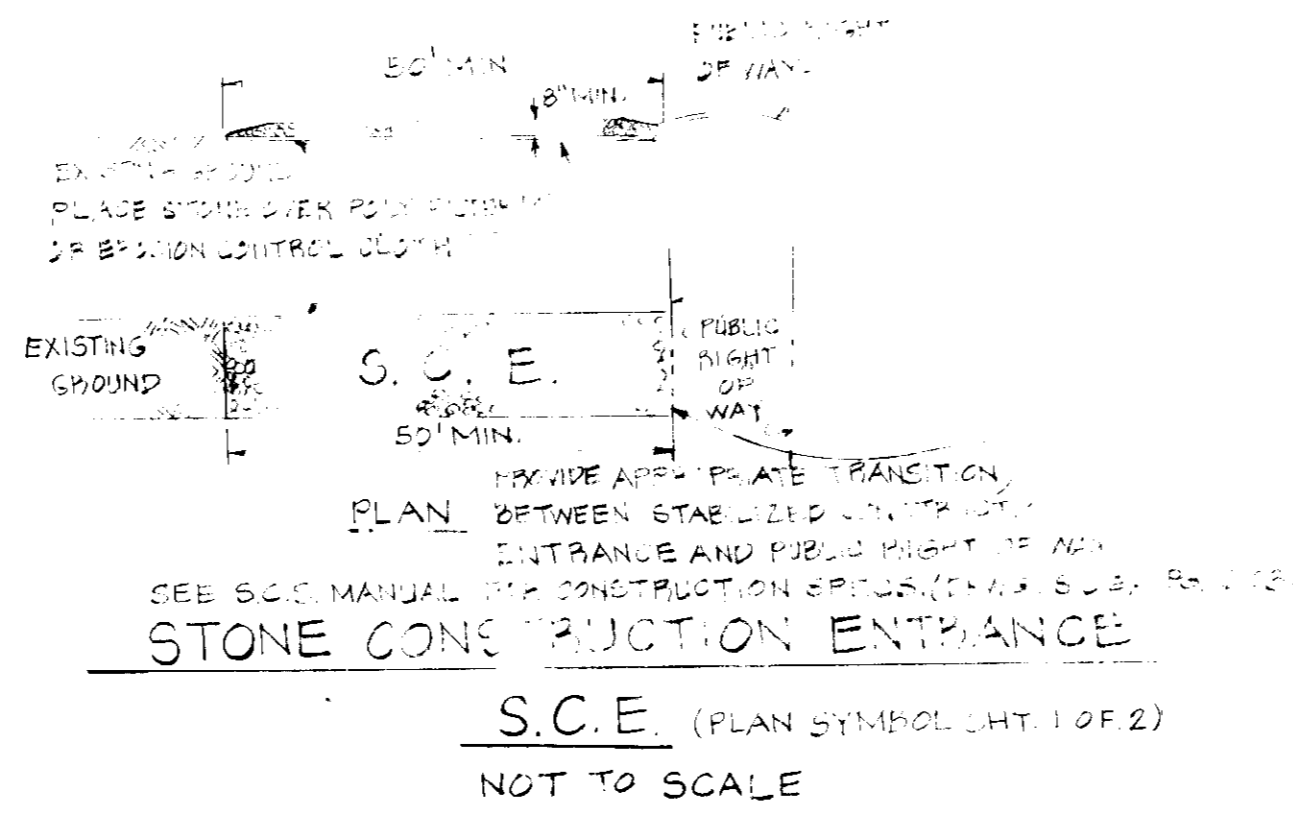 PUBLIC RIGHT
OF WAY
50' MIN
8" MIN.
EXISTING GROUND
PLACE STONE OVER POLY
OR EROSION CONTROL CLOTH
EXISTING
GROUND
S. C. E.
PUBLIC
RIGHT
OF
WAY
50' MIN.
PLAN
PROVIDE APPROPRIATE TRANSITION
BETWEEN STABILIZED
ENTRANCE AND PUBLIC RIGHT OF WAY
SEE S.C.S. MANUAL FOR CONSTRUCTION SPECS.
STONE CONSTRUCTION ENTRANCE
S.C.E. (PLAN SYMBOL SHT. 1 OF 2)
NOT TO SCALE